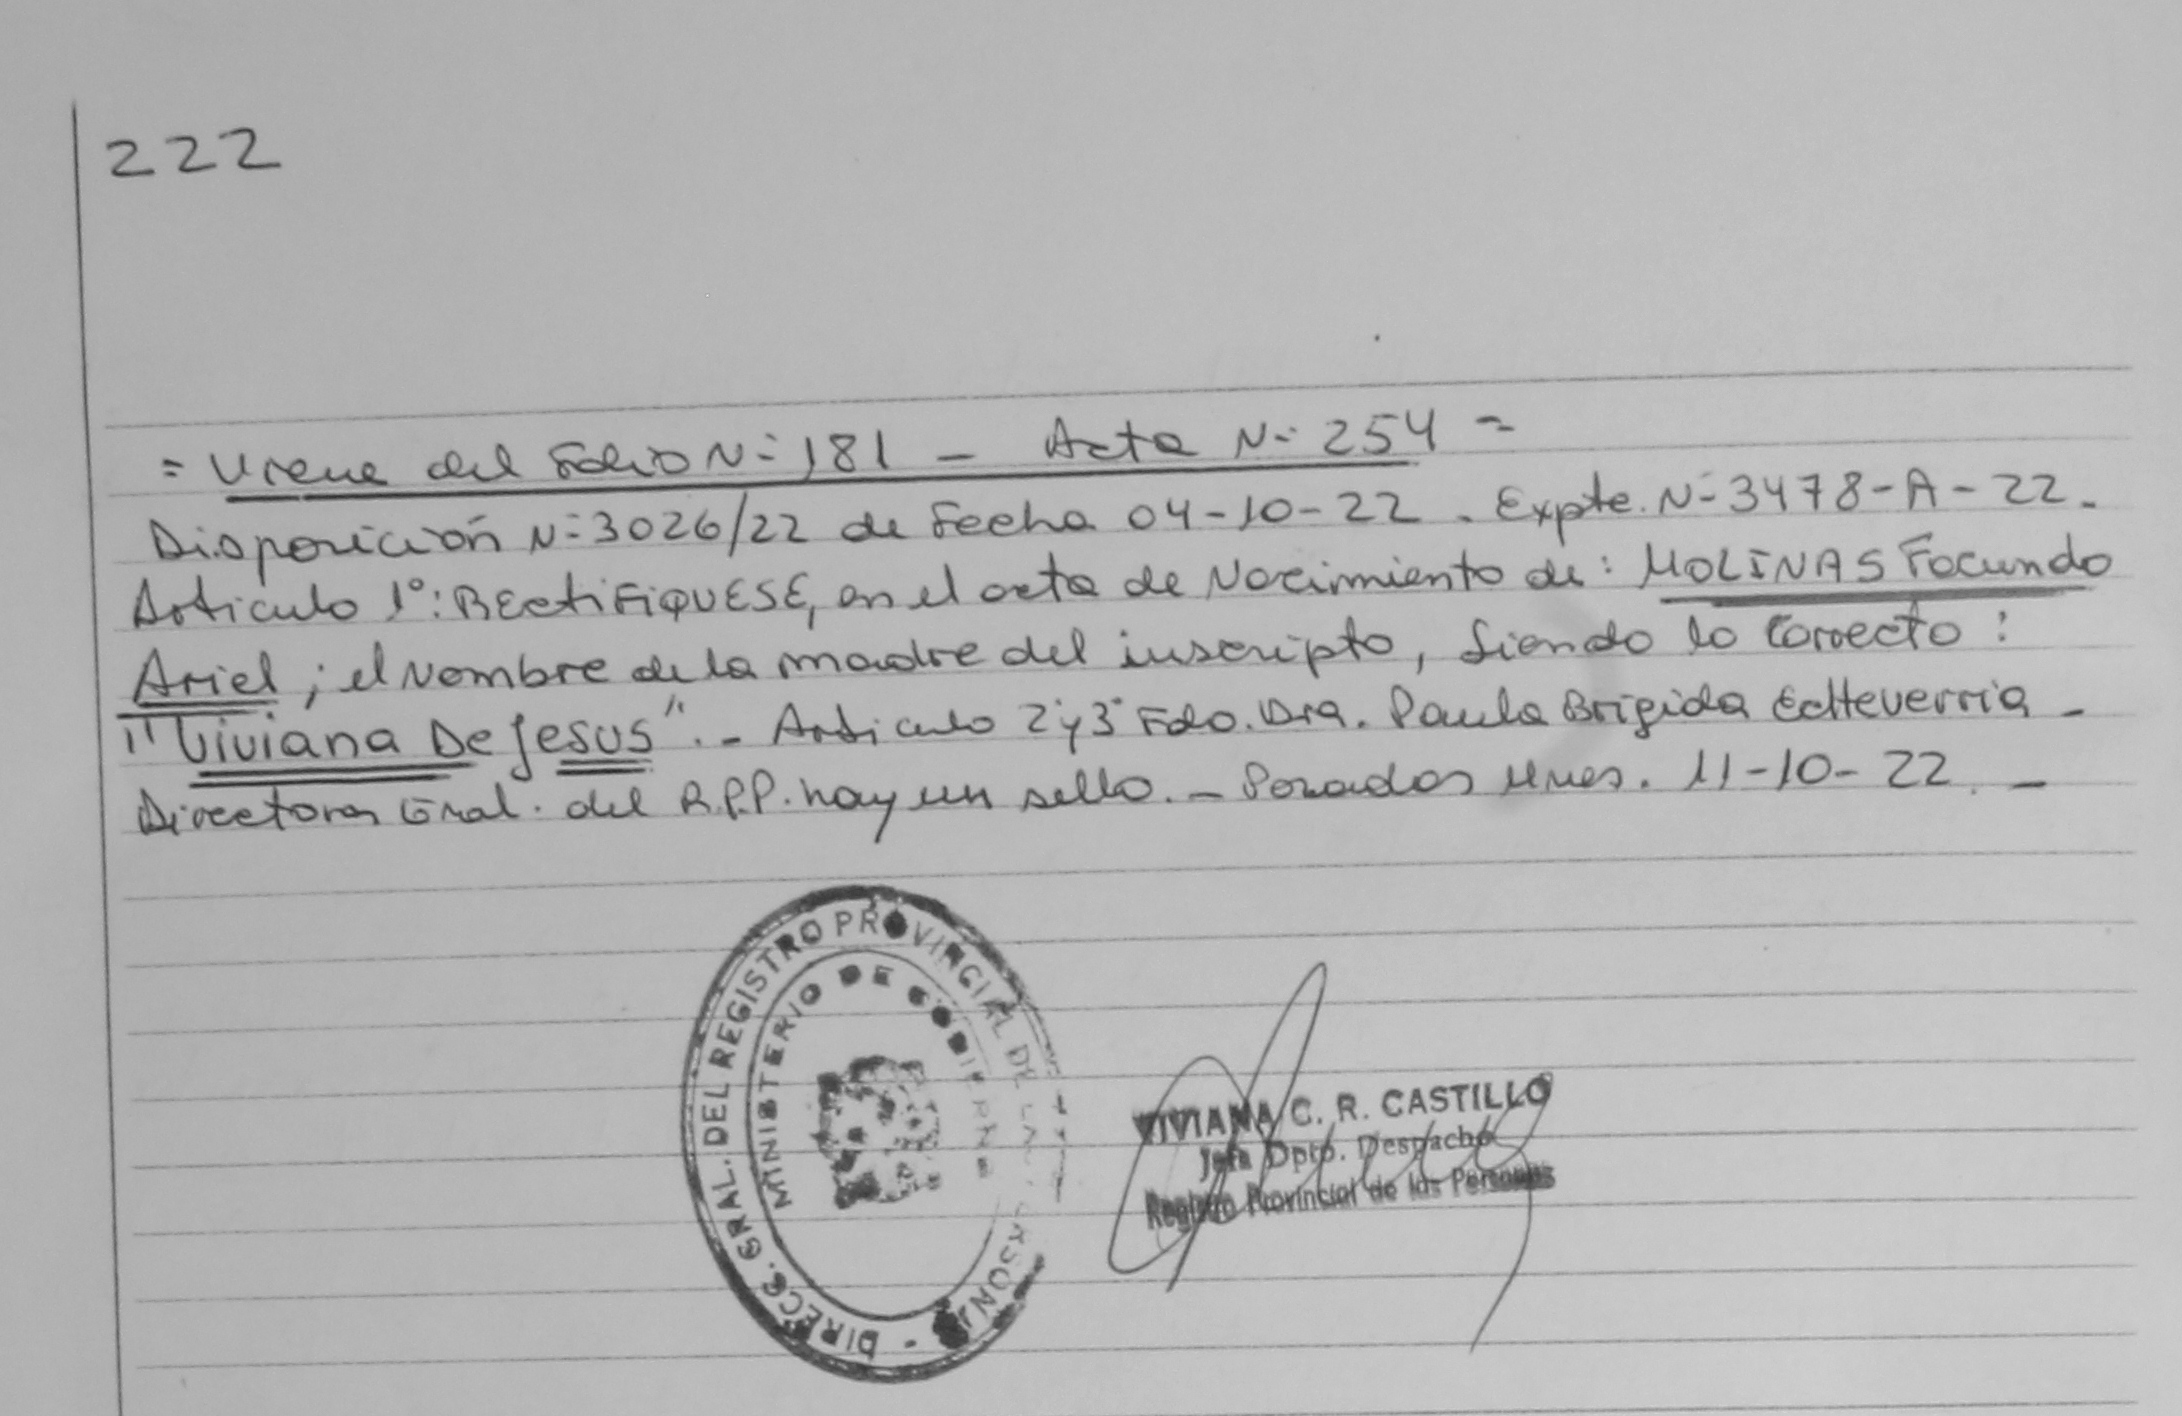 222
= Viene del Folio N° 181 - Acta N° 254 =
Disposición N° 3026/22 de Fecha 04-10-22. Expte. N° 3478-A-22.
Articulo 1°: RECtiFiQUESE, en el acta de Nacimiento de: MOLINAS Facundo
Ariel; el Nombre de la madre del inscripto, Siendo lo Correcto:
"Viviana De Jesus". - Articulo 2° y 3° Fdo. Dra. Paula Brigida Echeverria -
Directora Gral. del R.P.P. hay un sello. - Posadas Mnes. 11-10-22. -
DIRECC. GRAL. DEL REGISTRO PROVINCIAL DE LAS PERSONAS -
MINISTERIO DE GOBIERNO
VIVIANA C. R. CASTILLO
Jefa Dpto. Despacho
Registro Provincial de las Personas